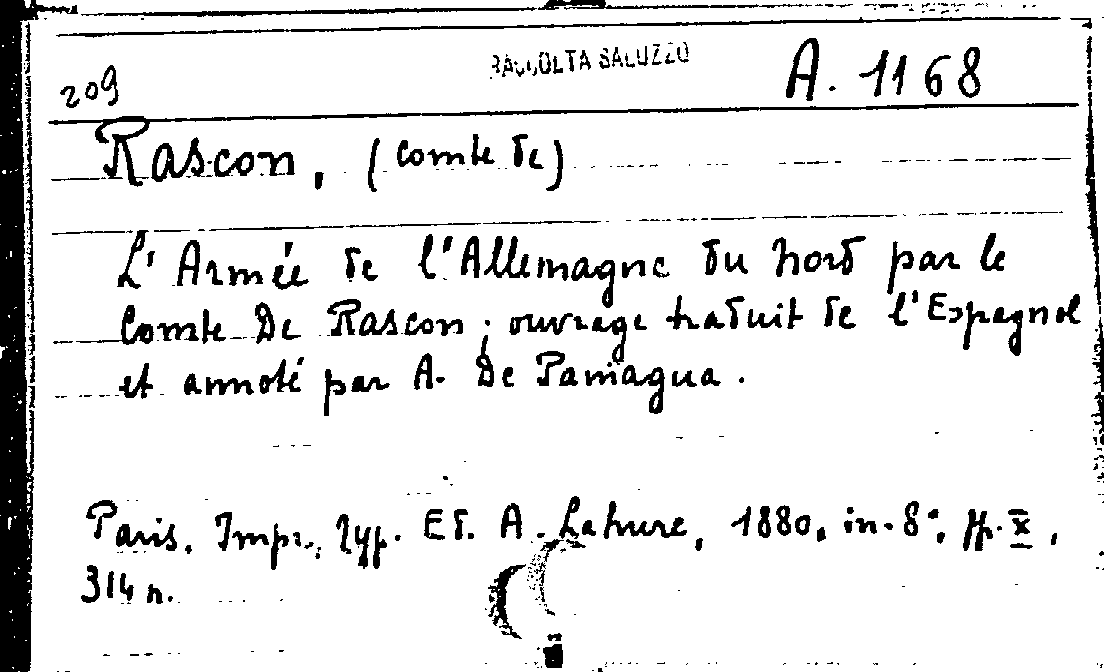 RACCOLTA SALUZZO
209
A. 1168
Rascon, (Comte de)
L'Armée de l'Allemagne du Nord par le
Comte De Rascon; ouvrage traduit de l'Espagnol
et annoté par A. De Paniagua.
Paris. Impr. Typ. Ed. A. Lahure, 1880, in-8°, pp. X,
314 n.